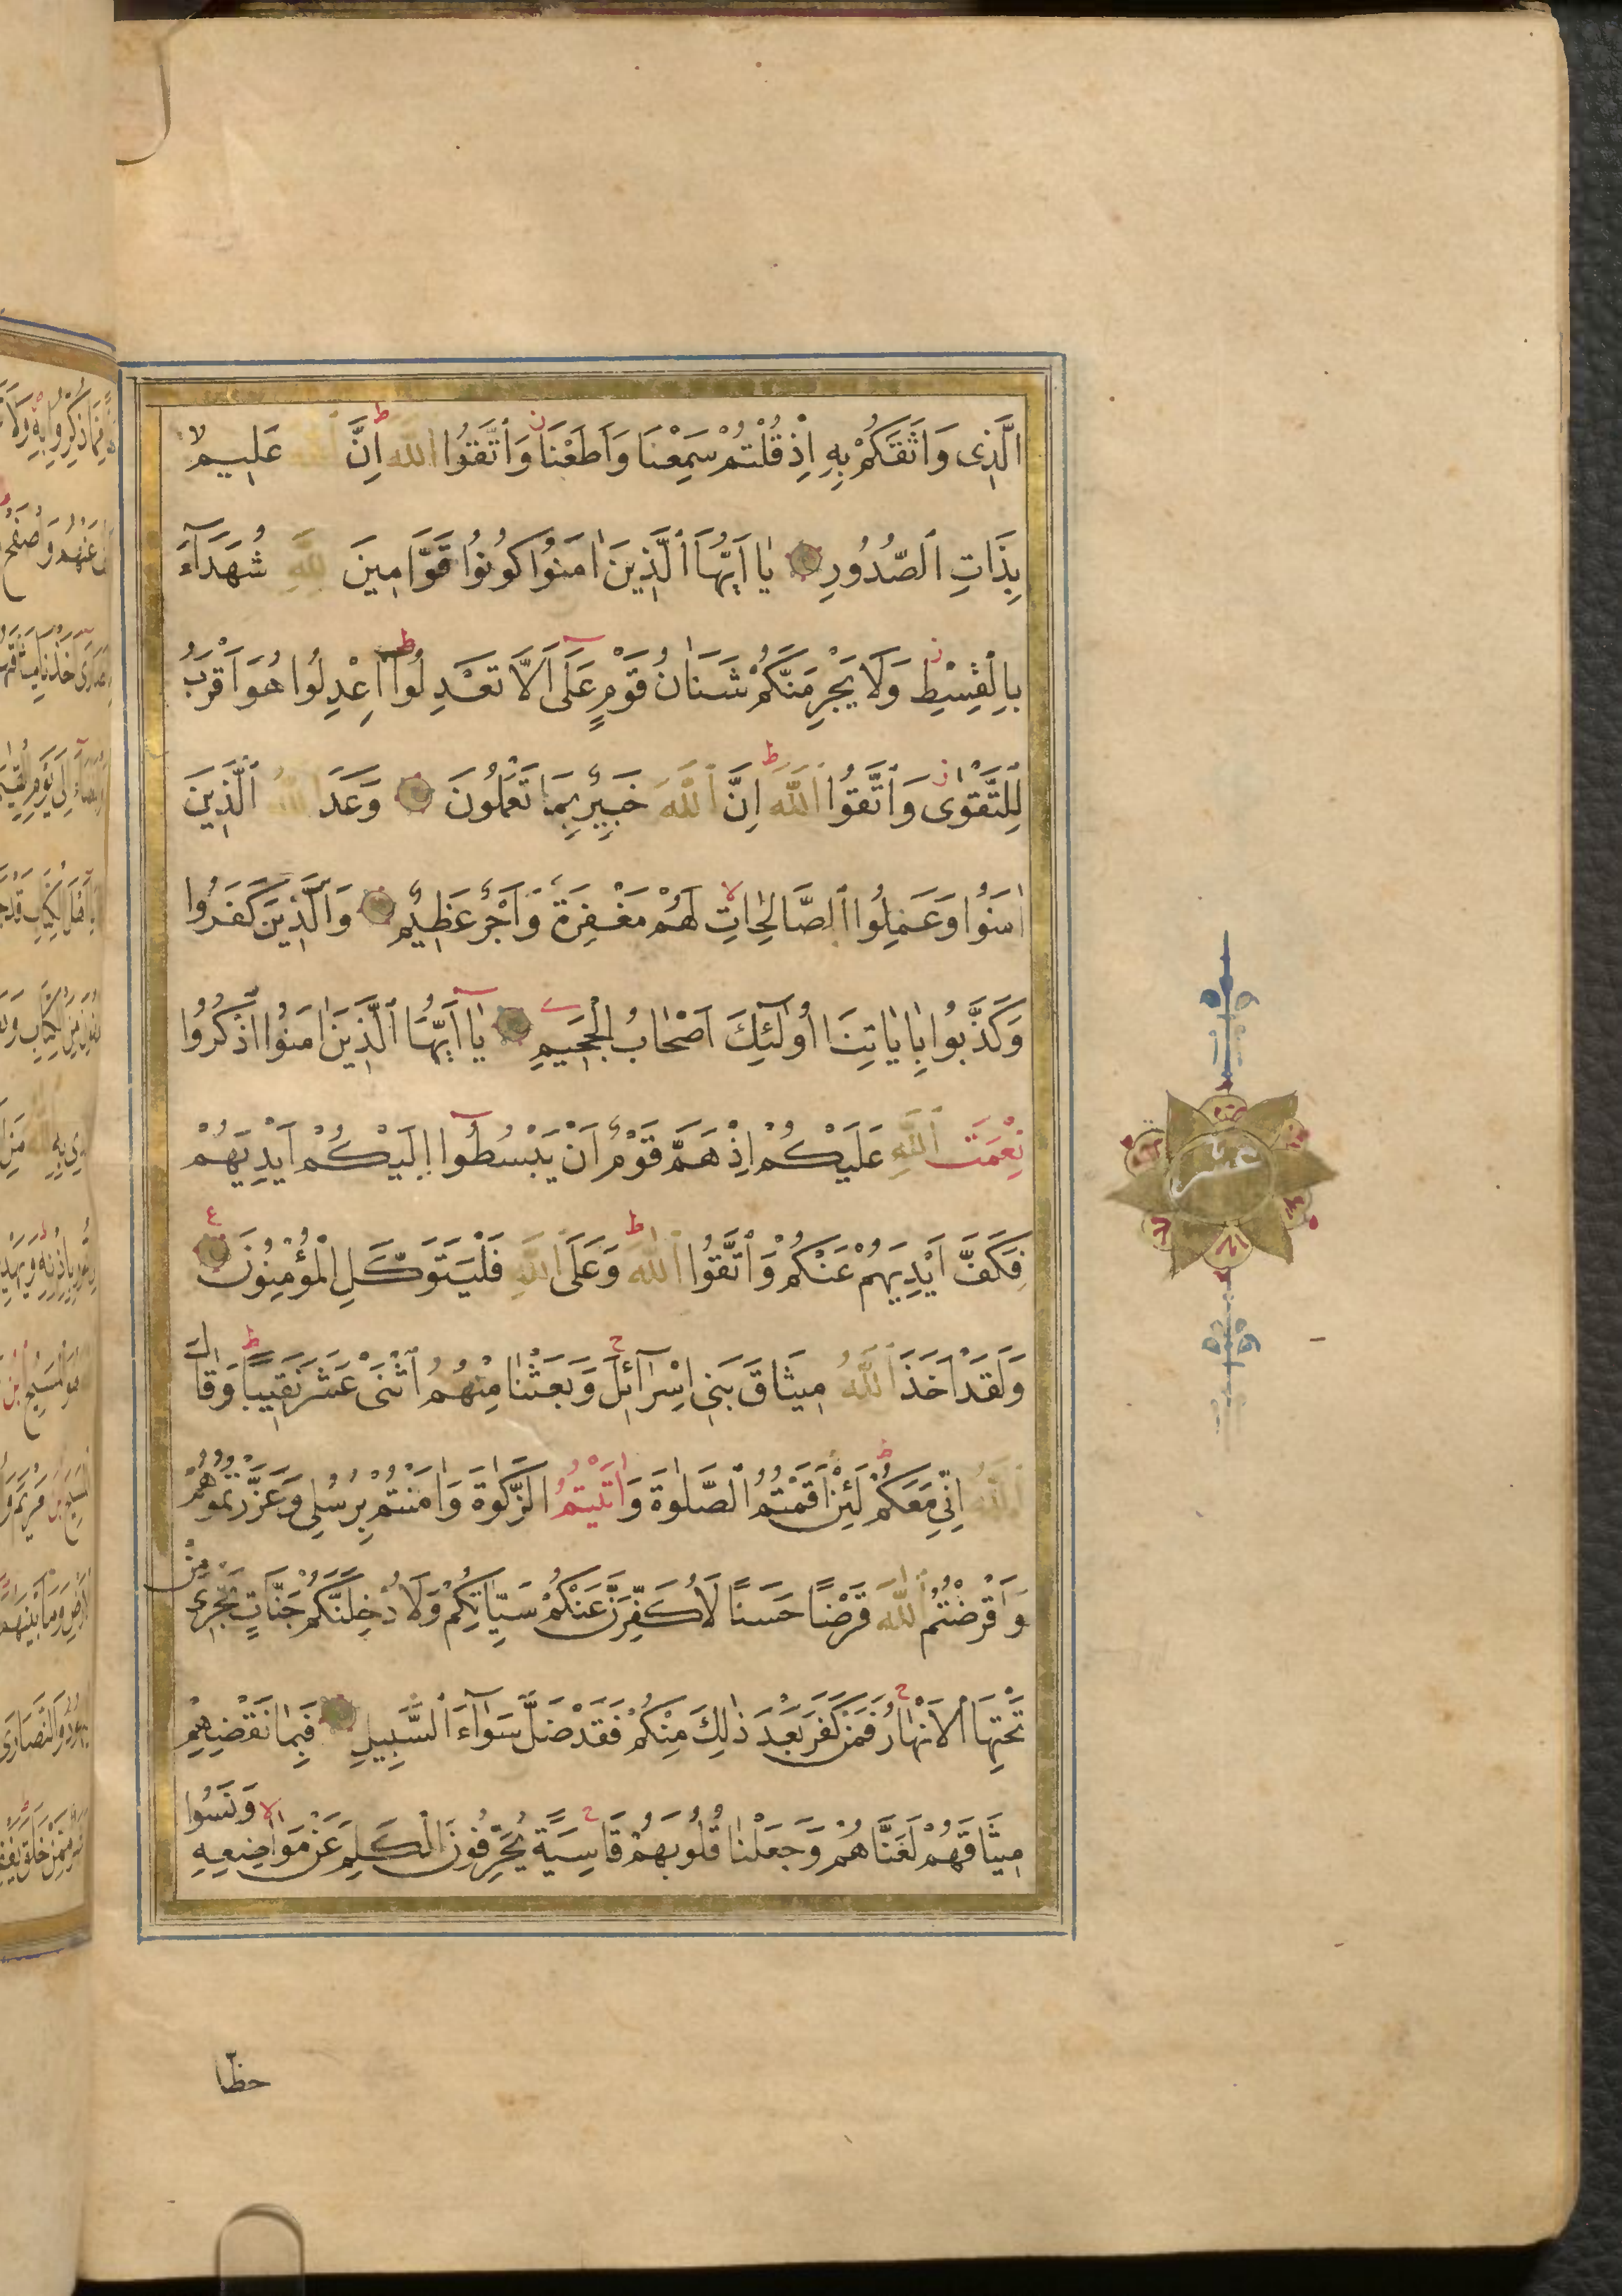 الَّذِى وَاثَقَكُمْ بِهِ اِذْ قُلْتُمْ سَمِعْنَا وَاَطَعْنَا وَاتَّقُوا اللّٰهَ اِنَّ اللّٰهَ عَلِيمٌ
بِذَاتِ الصُّدُورِ يَا اَيُّهَا الَّذِينَ اٰمَنُوا كُونُوا قَوَّامِينَ لِلّٰهِ شُهَدَآءَ
بِالْقِسْطِ وَلَا يَجْرِمَنَّكُمْ شَنَاٰنُ قَوْمٍ عَلَى اَلَّا تَعْدِلُوا اِعْدِلُوا هُوَ اَقْرَبُ
لِلتَّقْوٰى وَاتَّقُوا اللّٰهَ اِنَّ اللّٰهَ خَبِيرٌ بِمَا تَعْمَلُونَ وَعَدَ اللّٰهُ الَّذِينَ
اٰمَنُوا وَعَمِلُوا الصَّالِحَاتِ لَهُمْ مَغْفِرَةٌ وَاَجْرٌ عَظِيمٌ وَالَّذِينَ كَفَرُوا
وَكَذَّبُوا بِاٰيَاتِنَا اُولٰٓئِكَ اَصْحَابُ الْجَحِيمِ يَآ اَيُّهَا الَّذِينَ اٰمَنُوا اذْكُرُوا
نِعْمَتَ اللّٰهِ عَلَيْكُمْ اِذْ هَمَّ قَوْمٌ اَنْ يَبْسُطُوٓا اِلَيْكُمْ اَيْدِيَهُمْ
فَكَفَّ اَيْدِيَهُمْ عَنْكُمْ وَاتَّقُوا اللّٰهَ وَعَلَى اللّٰهِ فَلْيَتَوَكَّلِ الْمُؤْمِنُونَ
وَلَقَدْ اَخَذَ اللّٰهُ مِيثَاقَ بَنِى اِسْرَآئِلَ وَبَعَثْنَا مِنْهُمُ اثْنَىْ عَشَرَ نَقِيبًا وَقَالَ
اللّٰهُ اِنِّى مَعَكُمْ لَئِنْ اَقَمْتُمُ الصَّلٰوةَ وَاٰتَيْتُمُ الزَّكٰوةَ وَاٰمَنْتُمْ بِرُسُلِى وَعَزَّرْتُمُوهُمْ
وَاَقْرَضْتُمُ اللّٰهَ قَرْضًا حَسَنًا لَاُكَفِّرَنَّ عَنْكُمْ سَيِّاٰتِكُمْ وَلَاُدْخِلَنَّكُمْ جَنَّاتٍ تَجْرِى مِنْ
تَحْتِهَا الْاَنْهَارُ فَمَنْ كَفَرَ بَعْدَ ذٰلِكَ مِنْكُمْ فَقَدْ ضَلَّ سَوَآءَ السَّبِيلِ فَبِمَا نَقْضِهِمْ
مِيثَاقَهُمْ لَعَنَّاهُمْ وَجَعَلْنَا قُلُوبَهُمْ قَاسِيَةً يُحَرِّفُونَ الْكَلِمَ عَنْ مَوَاضِعِهِ وَنَسُوا
حظّا
عشر